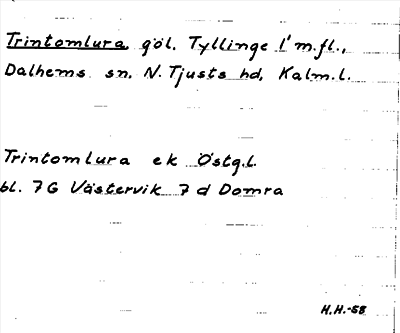 Trintomlura göl. Tyllinge 1' m.fl.,
Dalhems sn, N. Tjusts hd, Kalm.l.
Trintomlura ek Östg.l.
bl. 7G Västervik 7 d Domra
H.H.-58